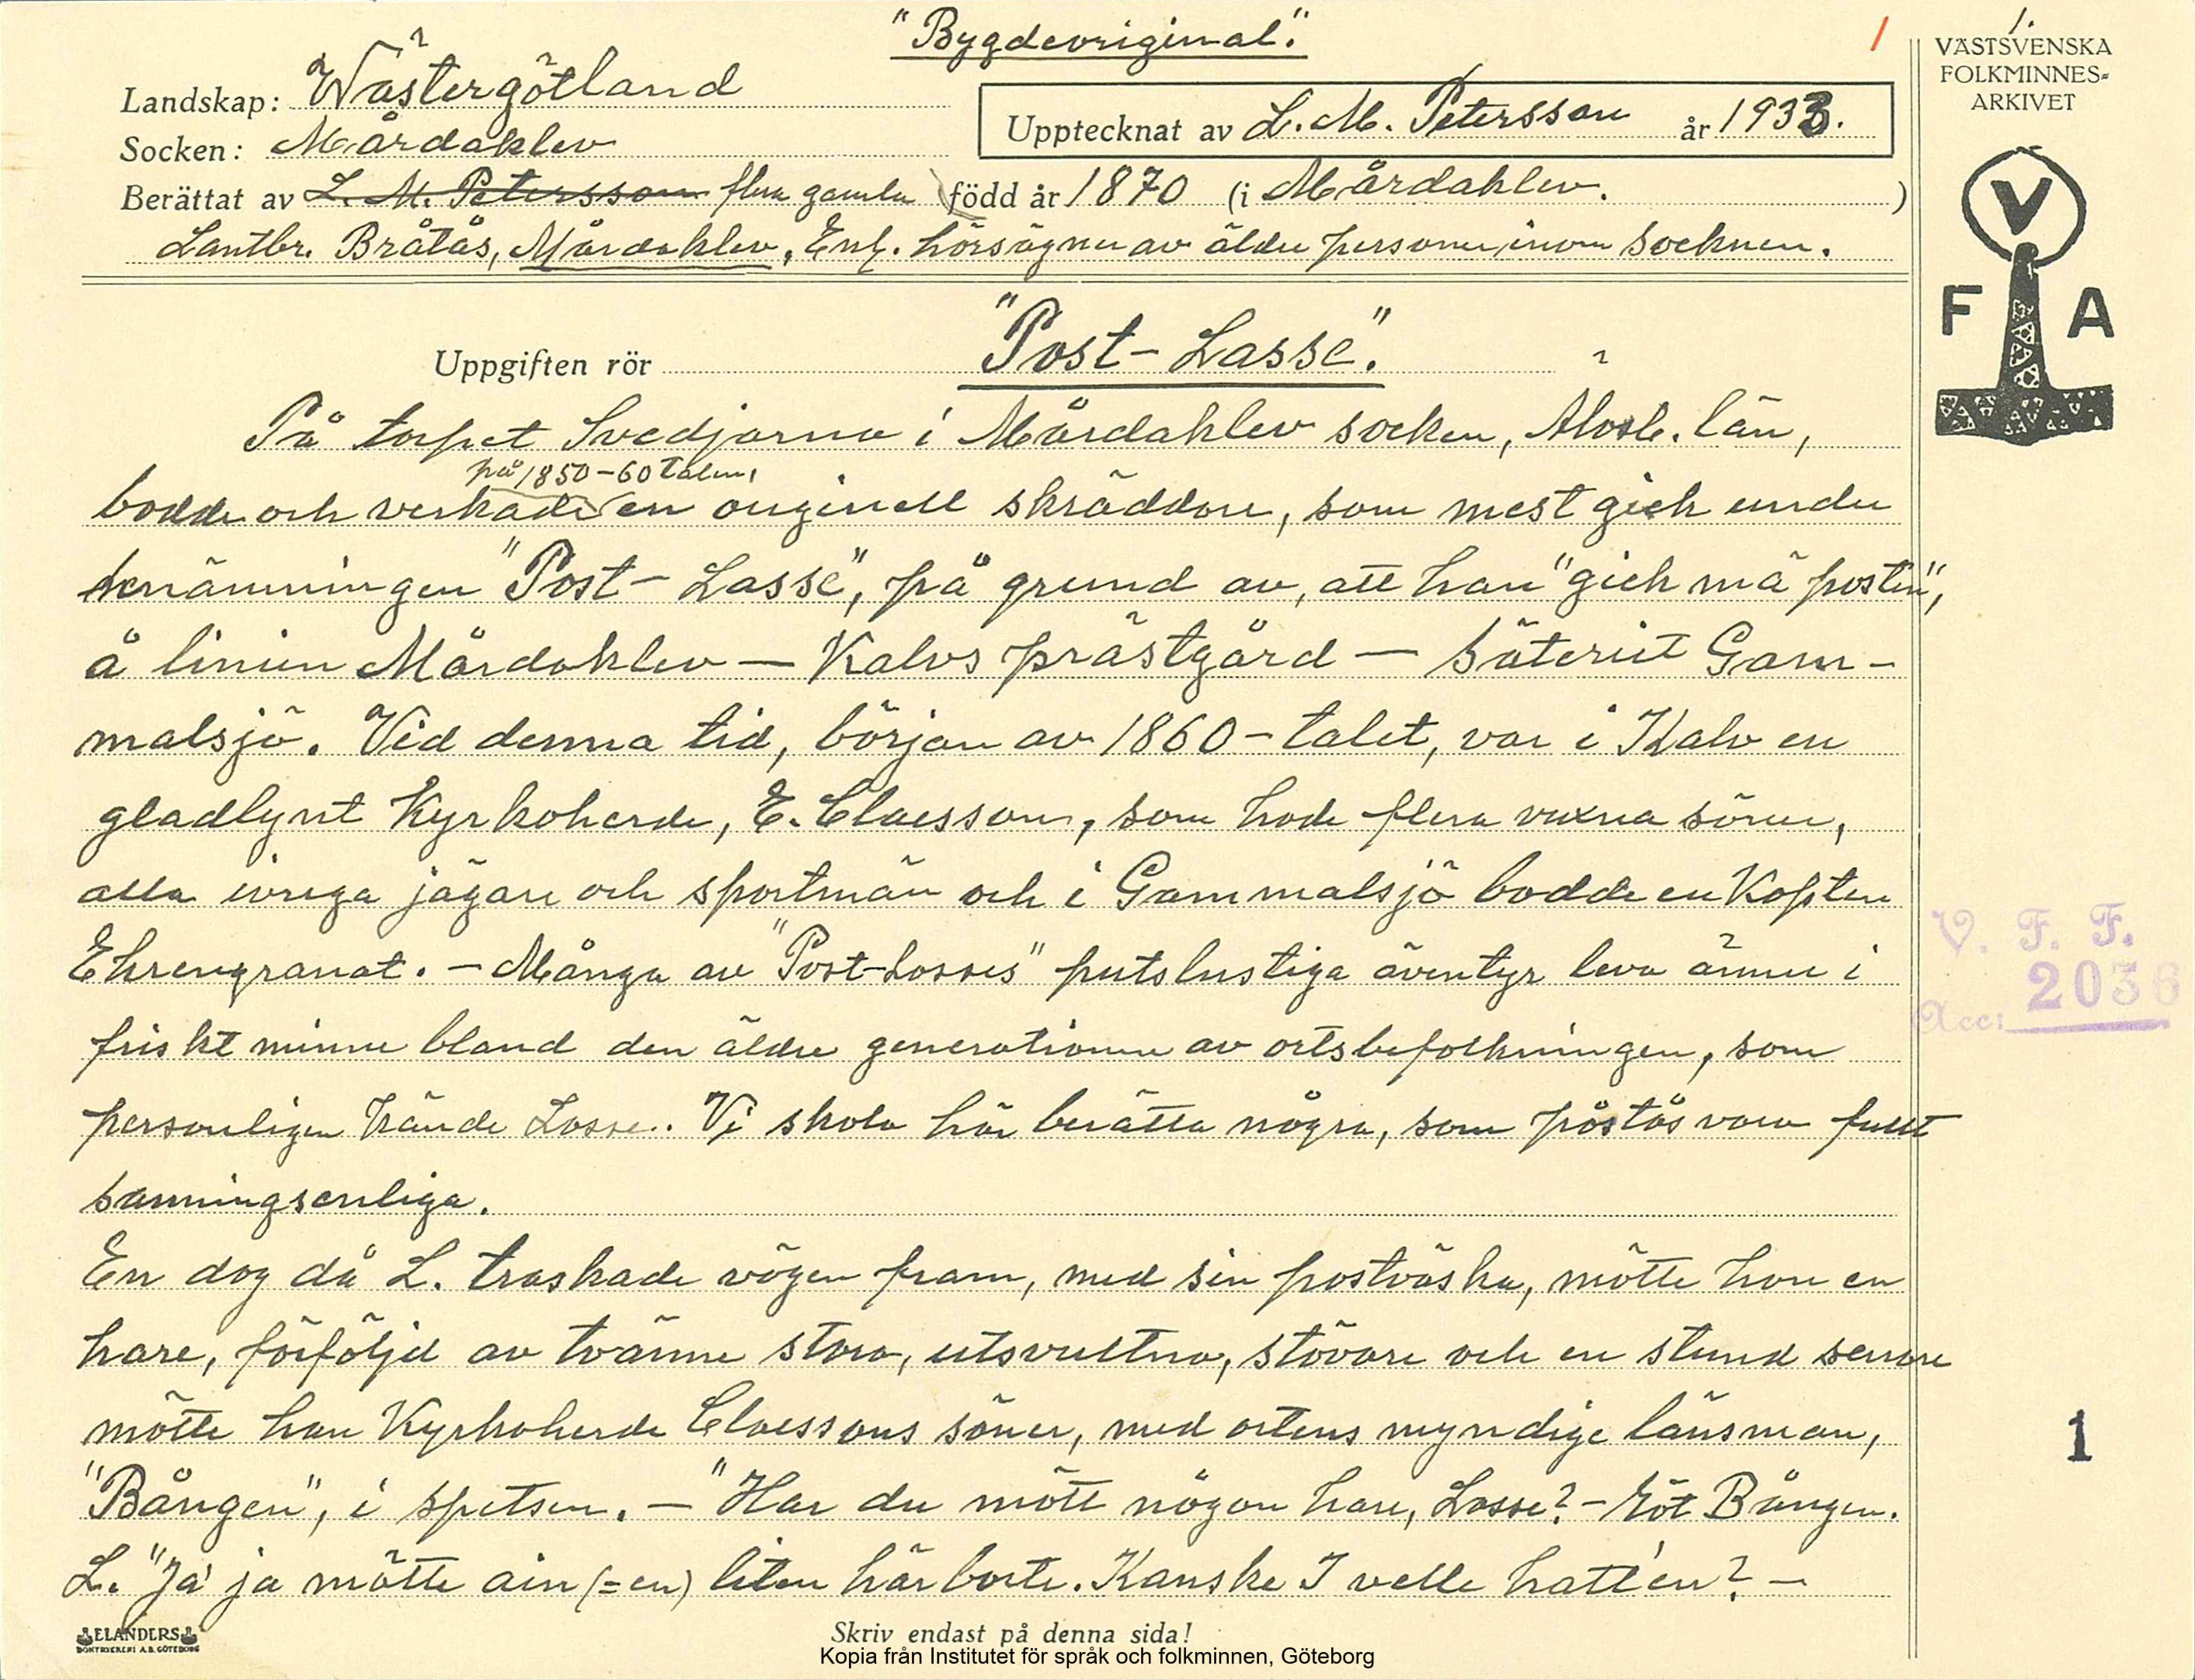 "Bygdeoriginal".
1
1.
VÄSTSVENSKA
FOLKMINNES-
ARKIVET
Landskap: Västergötland
Upptecknat av L. M. Petersson år 1933.
Socken: Mårdaklev
Berättat av L. M. Petersson flera gamla född år 1870 (i Mårdaklev.)
Lantbr. Bråtås, Mårdaklev, Enl. hörsägner av äldre personer inom socknen.
V
F A
Uppgiften rör "Post-Lasse".
På torpet Svedjorna i Mårdaklev socken, Älvsb. län,
på 1850-60 talen,
bodde och verkade en originell skräddare, som mest gick under
benämningen "Post-Lasse", på grund av, att han "gick mä postin",
å linien Mårdaklev – Kalvs prästgård – säteriet Gam-
malsjö. Vid denna tid, början av 1860-talet, var i Kalv en
gladlynt Kyrkoherde, E. Claesson, som hade flera vuxna söner,
alla ivriga jägare och sportmän och i Gammalsjö bodde en Kapten
Ehrengranat. – Många av "Post-Lasses" putslustiga äventyr leva ännu i
friskt minne bland den äldre generationen av ortsbefolkningen, som
personligen kände Lasse. Vi skola här berätta några, som påstås vara fullt
sanningsenliga.
En dag då L. traskade vägen fram, med sin postväska, mötte han en
hare, förföljd av tvänne stora, utsvultna, stövare och en stund senare
mötte han Kyrkoherde Claessons söner, med ortens myndige länsman,
"Bången", i spetsen. – "Har du mött någon hare, Lasse? – röt Bången.
L. "Ja' ja mötte ain (= en) liten här borte. Kanske I velle hatt'en? –
V. F. F.
Acc: 2036
1
ELANDERS
BOKTRYCKERI A.B. GÖTEBORG
Skriv endast på denna sida!
Kopia från Institutet för språk och folkminnen, Göteborg